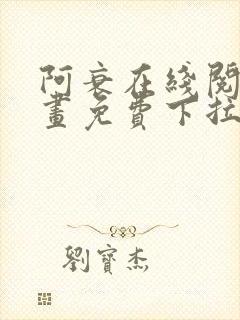 阿衰在线阅
畫免費下拉
劉寶杰